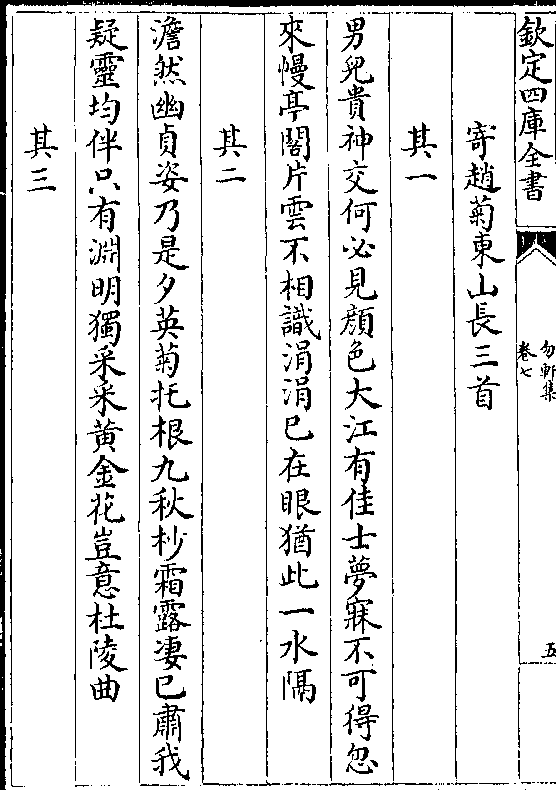 欽定四庫全書
勿軒集
卷七
五
寄趙菊東山長三首
其一
男兒貴神交何必見顔色大江有佳士夢寐不可得忽
來幔亭閣片雲不相識涓涓已在眼猶此一水隔
其二
澹然幽貞姿乃是夕英菊托根九秋杪霜露凄已肅我
疑靈均伴只有淵明獨采采黄金花豈意杜陵曲
其三